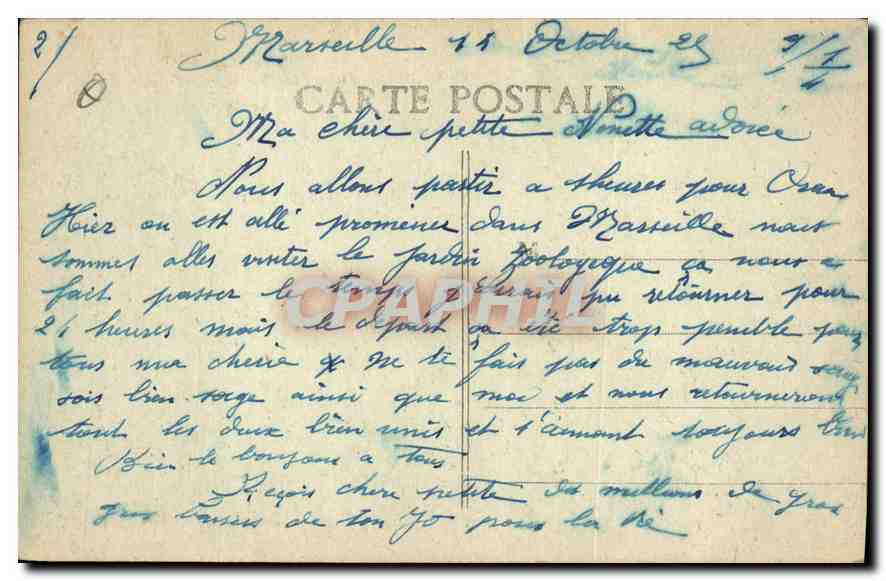 2/
Marseille 11 Octobre 25
CARTE POSTALE
Ma chère petite Ninette adorée
Nous allons partir a 5heures pour Oran
Hier on est allé promener dans Marseille nous
sommes alles visiter le jardin zoologeque ça nous a
fait passer le temps j'aurais pu retourner pour
24 heures mais le depart a été trop penible pour
tous ma cherie ne te fais pas du mauvais sang
sois bien sage ainsi que moi et nous retournerons
tout les deux bien unis et s'aimant toujours bien
Bien le bonjour a tous
Reçois chere petite des millions de gros
gros baisers de ton Jo pour la vie
CPAPHIL